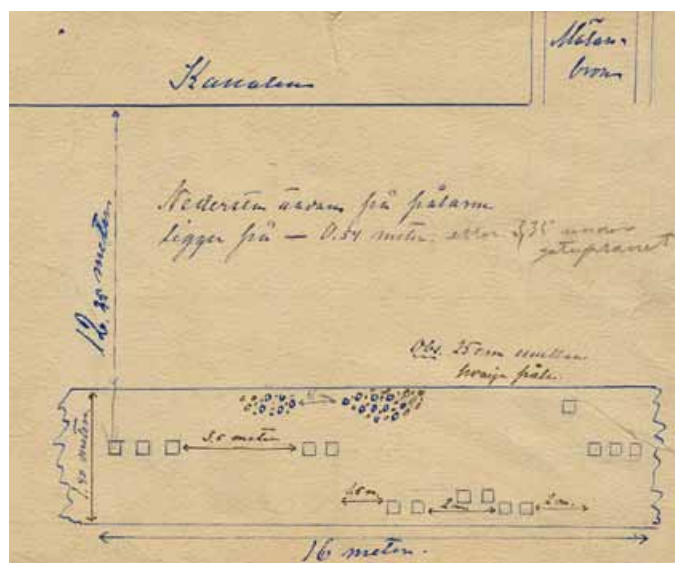 Kanalen
Mälar-
bron
Nedersta ändan på pålarna
ligger på — 0.54 meter. eller 3,35 under
gatuplanet
12.35 meter
Obs. 25 cm mellan
hvarje påle.
3.5 meter
1.50 meter
1.5 m.
2 m.
2 m.
16 meter.